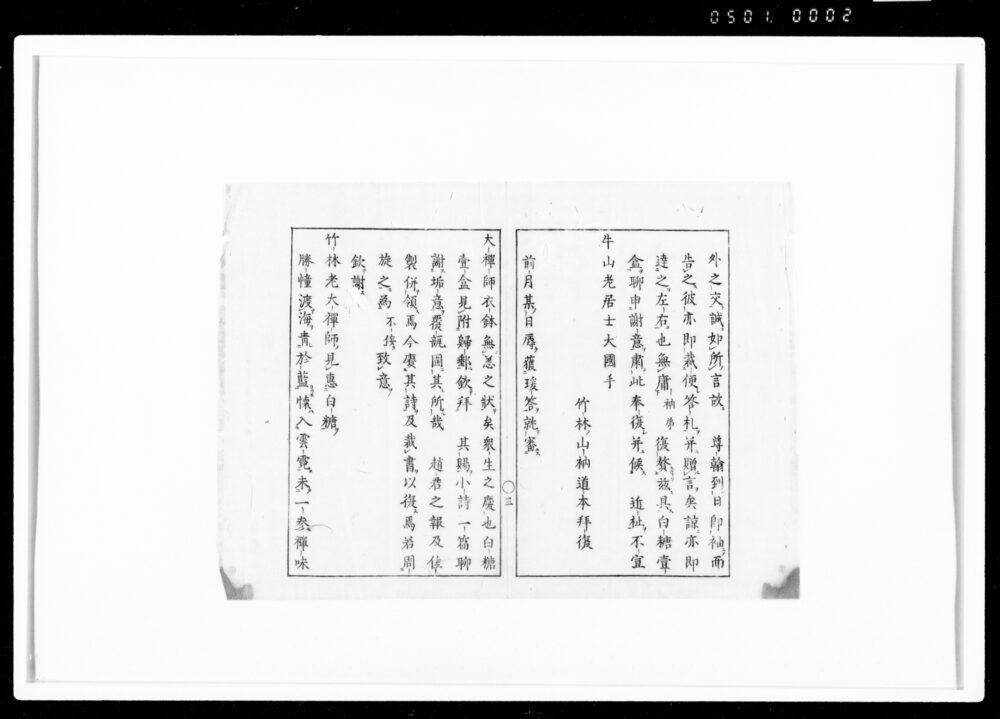 0501. 0002
外之交誠如所言故 尊翰到日即袖而
告之彼亦即裁便答札并贈言矣諒亦即
達之左右也無庸衲弟復贅茲具白糖壹
盒聊申謝意肅此奉復并候 近祉不宣
牛山老居士大國手
竹林山衲道本拜復
前月某日辱蒦瑗答就審
三
大禪師衣鉢無恙之狀矣眾生之慶也白糖
壹盒見附歸郵欽拜 其賜小詩一篇聊
謝垢意覆瓿固其所哉 趙君之報及佳
製併領焉今賡其詩及裁書以復焉若周
旋之為不接致意
欽謝
竹林老大禪師見惠白糖
勝幢渡海青於藍懷入雲霓未一參禪味